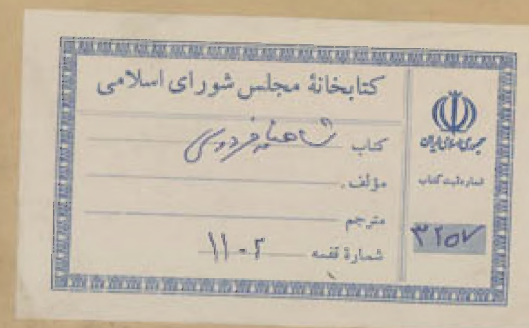 کتابخانهٔ مجلس شورای اسلامی
کتاب شاهنامه فردوسی
مؤلف
مترجم
شمارهٔ قفسه ۱۱۰۲
جمهوری اسلامی ایران
شماره ثبت کتاب
۳۲۵۷